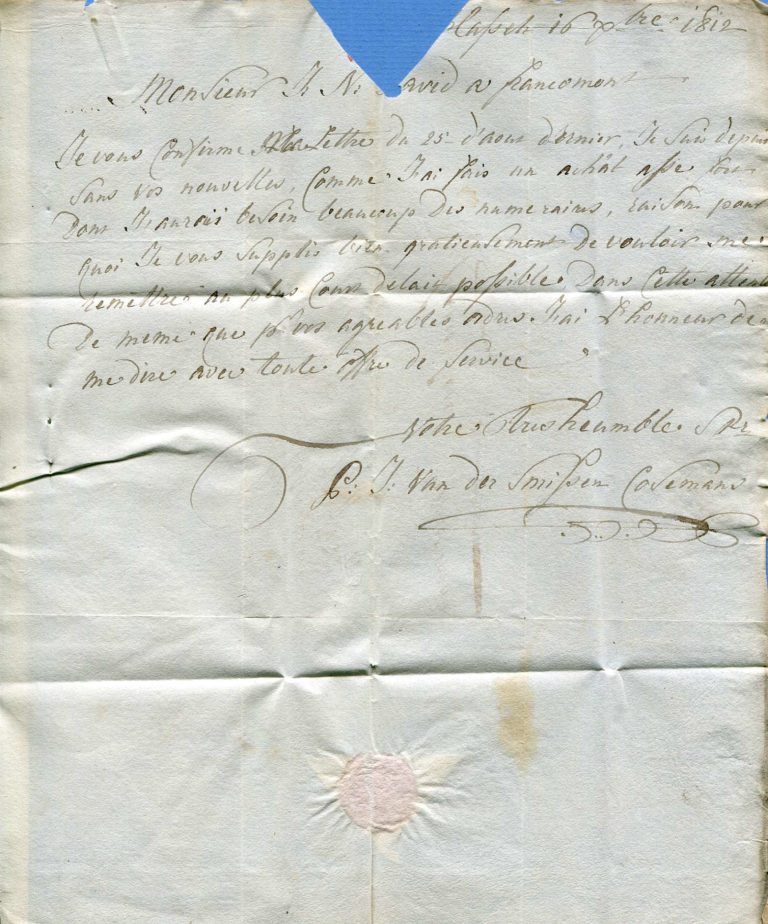 Hasselt 16 8bre 1812
Monsieur J. N. David a francomont
Je vous Confirme Ma Lettre du 25 d'aout dernier, Je suis depuis
sans vos nouvelles, Comme J'ai fais un achât asse fort
dont J'aurois besoin beaucoup des numerairs, raison pour
quoi Je vous supplis bien gratieusement de vouloir me
remettre au plus Cour delait possible. Dans Cette attente
De meme que pr vos agreables ordres J'ai L'honneur de
me dire avec toute offre de Service
Votre Tres heumble Sr
P: J: Van der Smissen Cosemans